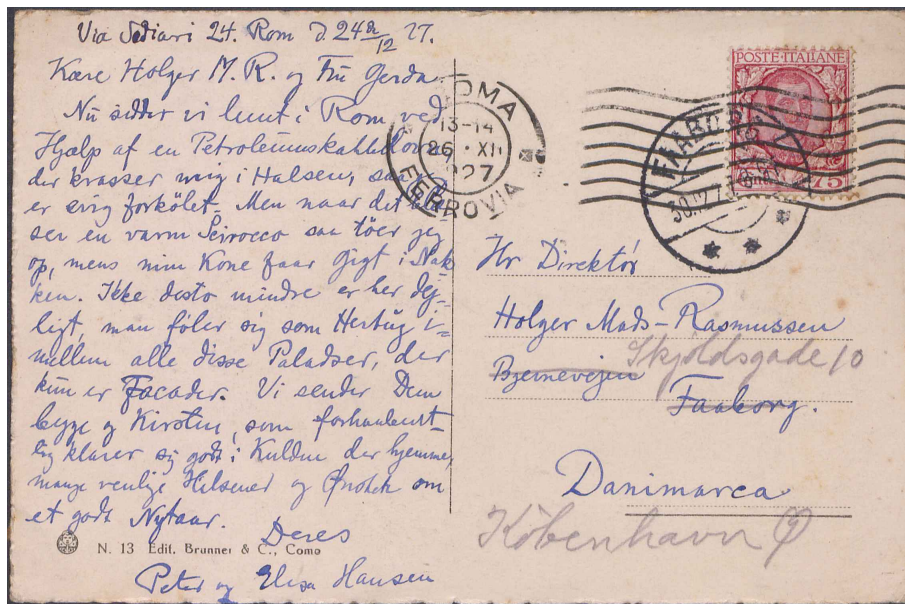 Via Sediari 24. Rom d. 24de/12 27.
Kære Holger M. R. og Fru Gerda.
Nu sidder vi lunt i Rom ved
Hjælp af en Petroleumskakkelovn,
der krasser mig i Halsen, saa
er evig forkölet. Men naar det
ser en varm Scirocco saa töer jeg
op, mens min Kone faar Gigt i Nak
ken. Ikke desto mindre er her dej-
ligt, man föler sig som Hertug i-
mellem alle disse Paladser, der
kun er Facader. Vi sender Dem
begge og Kirsten, som forhaabent-
lig klarer sig godt i Kulden der hjemme,
mange venlige Hilsener og Ønsker om
et godt Nytaar.
Deres
Peter og Elisa Hansen
N. 13 Edit. Brunner & C., Como
ROMA
13-14
26 · XII
1927
FERROVIA
POSTE·ITALIANE
75
FAABORG
30.12.27
Hr Direktör
Holger Mads-Rasmussen
Bjernevejen Skjoldsgade 10
Faaborg.
Danimarca
Köbenhavn Ø